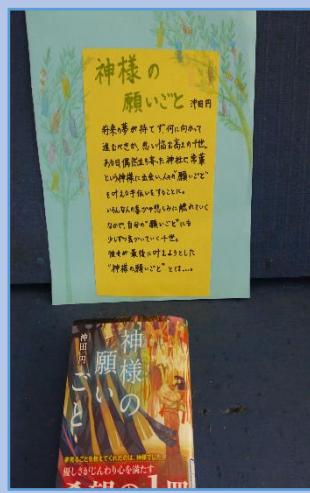 神様の
願いごと 沖田円
将来の夢が持てず何に向かって
進むべきか、思い悩む高2の千世。
ある日偶然立ち寄った神社で、常葉
という神様に出会い、人々の"願いごと"
を叶える手伝いをすることに。
いろんな人の喜びや悲しみに触れていく
なかで、自分の"願いごと"にも
少しずつ気づいていく千世。
彼女が最後に叶えようとした
"神様の願いごと"とは….
神様の
願い
ごと
沖田円
夢見ることを教えてくれたのは、神様でした
優しさがじんわり心を満たす
希望の1冊